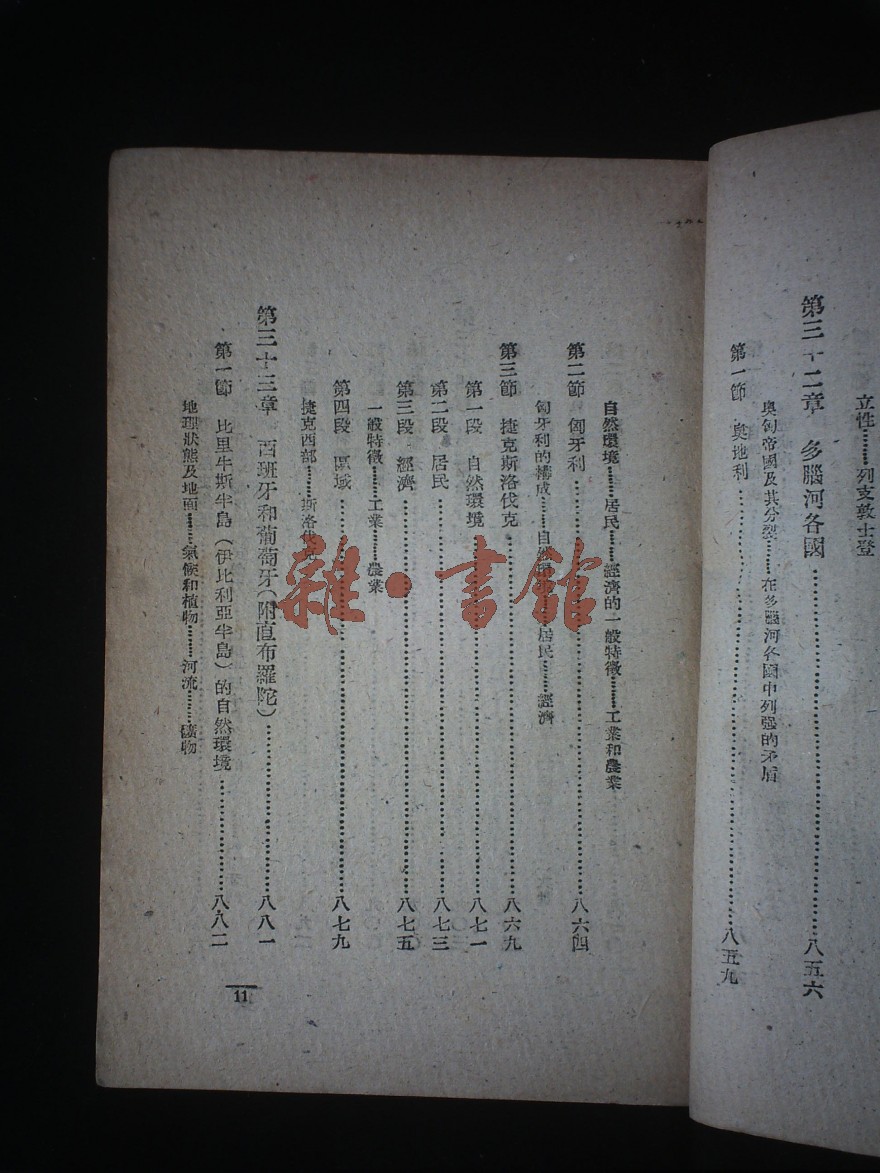 立性………列支敦士登
第三十二章 多腦河各國…………八五六
奥匈帝國及其分裂………在多腦河各國中列强的矛盾
第一節 奥地利…………八五九
自然環境………居民………經濟的一般特徵………工業和農業
第二節 匈牙利…………八六四
匈牙利的構成………自然環境………居民………經濟
第三節 捷克斯洛伐克…………八六九
第一段 自然環境…………八七一
第二段 居民…………八七三
第三段 經濟…………八七五
一般特徵………工業………農業
第四段 區域…………八七九
捷克西部………斯洛伐克
第三十三章 西班牙和葡萄牙(附直布羅陀)…………八八一
第一節 比里牛斯半島(伊比利亞半島)的自然環境…………八八二
地理狀態及地面………氣候和植物………河流………礦物
11
雜·書館